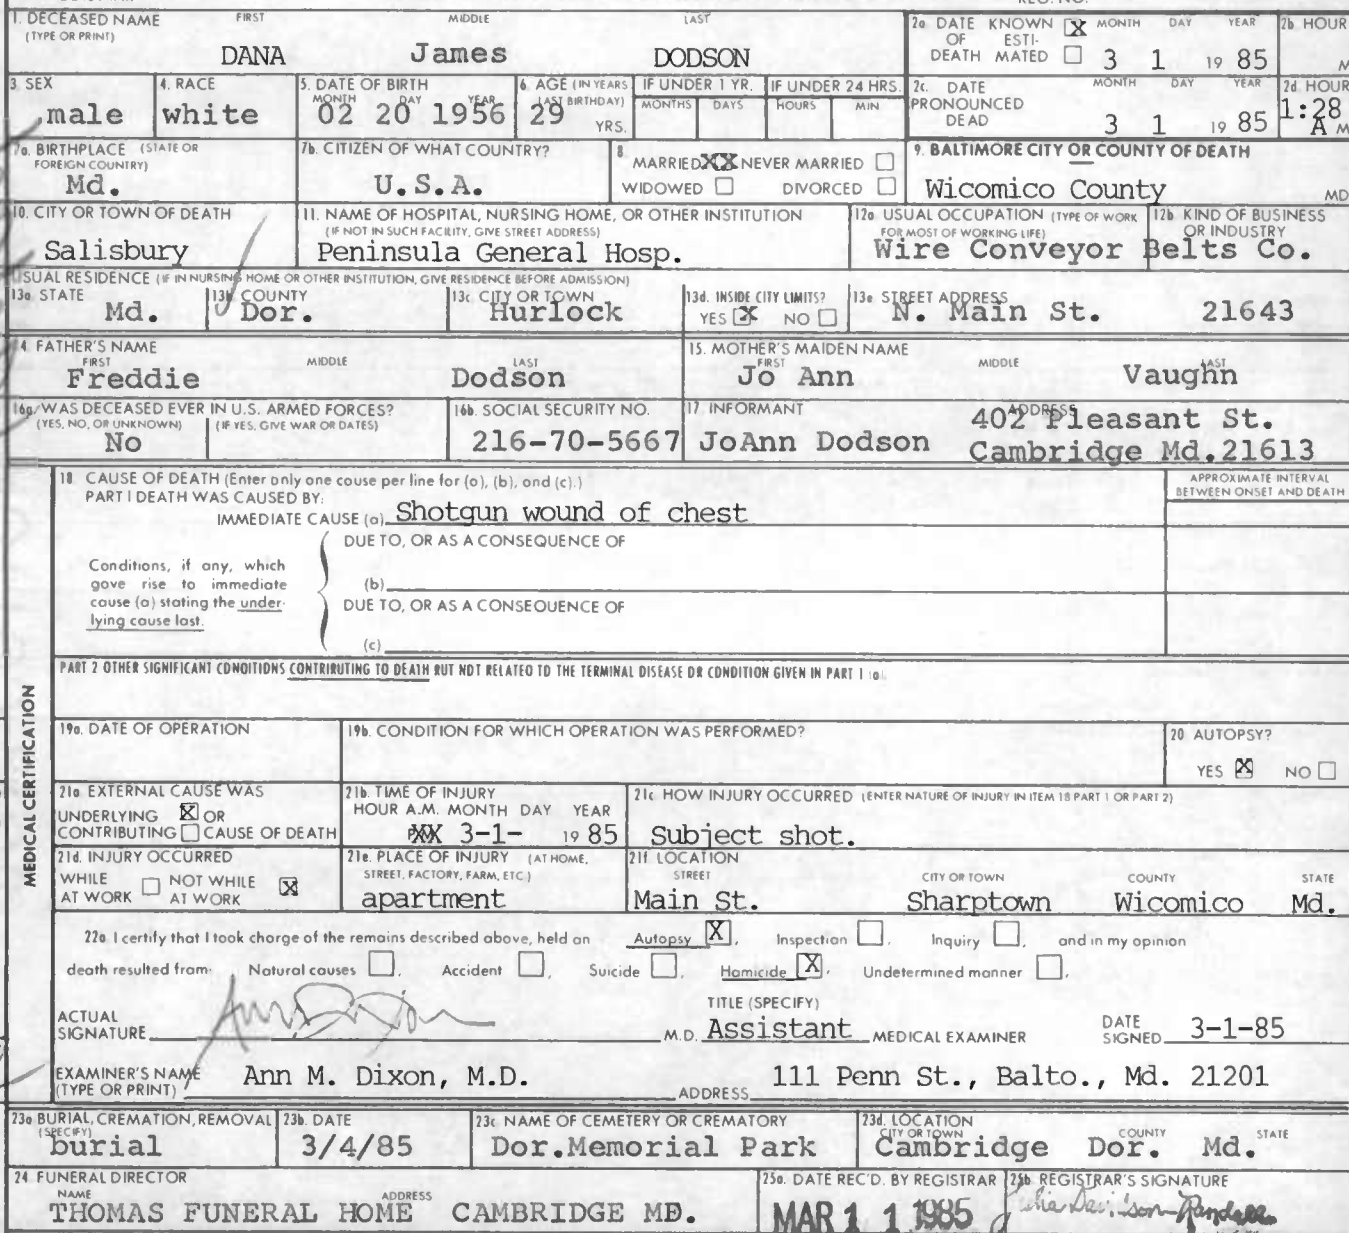 1. DECEASED NAME FIRST MIDDLE LAST
(TYPE OR PRINT)
DANA James DODSON
2a DATE KNOWN X MONTH DAY YEAR
OF ESTI-
DEATH MATED 3 1 19 85
2b. HOUR
M
3. SEX
male
4. RACE
white
5. DATE OF BIRTH
MONTH DAY YEAR
02 20 1956
6. AGE (IN YEARS
LAST BIRTHDAY)
29 YRS.
IF UNDER 1 YR.
MONTHS DAYS
IF UNDER 24 HRS.
HOURS MIN
2c. DATE MONTH DAY YEAR
PRONOUNCED
DEAD 3 1 19 85
2d HOUR
1:28
A M
7a. BIRTHPLACE (STATE OR
FOREIGN COUNTRY)
Md.
7b. CITIZEN OF WHAT COUNTRY?
U.S.A.
8.
MARRIED XX NEVER MARRIED
WIDOWED DIVORCED
9. BALTIMORE CITY OR COUNTY OF DEATH
Wicomico County MD
10. CITY OR TOWN OF DEATH
Salisbury
11. NAME OF HOSPITAL, NURSING HOME, OR OTHER INSTITUTION
(IF NOT IN SUCH FACILITY, GIVE STREET ADDRESS)
Peninsula General Hosp.
12a USUAL OCCUPATION (TYPE OF WORK
FOR MOST OF WORKING LIFE)
12b. KIND OF BUSINESS
OR INDUSTRY
Wire Conveyor Belts Co.
USUAL RESIDENCE (IF IN NURSING HOME OR OTHER INSTITUTION, GIVE RESIDENCE BEFORE ADMISSION)
13a STATE
Md.
13b COUNTY
Dor.
13c CITY OR TOWN
Hurlock
13d. INSIDE CITY LIMITS?
YES X NO
13e STREET ADDRESS
N. Main St. 21643
14. FATHER'S NAME
FIRST MIDDLE LAST
Freddie Dodson
15. MOTHER'S MAIDEN NAME
FIRST MIDDLE LAST
Jo Ann Vaughn
16a. WAS DECEASED EVER IN U.S. ARMED FORCES?
(YES, NO, OR UNKNOWN) (IF YES, GIVE WAR OR DATES)
No
16b. SOCIAL SECURITY NO.
216-70-5667
17. INFORMANT
JoAnn Dodson
ADDRESS
402 Pleasant St.
Cambridge Md.21613
MEDICAL CERTIFICATION
18 CAUSE OF DEATH (Enter only one cause per line for (a), (b), and (c).)
PART I DEATH WAS CAUSED BY:
IMMEDIATE CAUSE (a) Shotgun wound of chest
APPROXIMATE INTERVAL
BETWEEN ONSET AND DEATH
DUE TO, OR AS A CONSEQUENCE OF
Conditions, if any, which
gave rise to immediate
cause (a) stating the under-
lying cause last.
(b)
DUE TO, OR AS A CONSEQUENCE OF
(c)
PART 2 OTHER SIGNIFICANT CONDITIONS CONTRIBUTING TO DEATH BUT NOT RELATED TO THE TERMINAL DISEASE OR CONDITION GIVEN IN PART 1 (a).
19a. DATE OF OPERATION
19b. CONDITION FOR WHICH OPERATION WAS PERFORMED?
20 AUTOPSY?
YES X NO
21a EXTERNAL CAUSE WAS
UNDERLYING X OR
CONTRIBUTING CAUSE OF DEATH
21b. TIME OF INJURY
HOUR A.M. MONTH DAY YEAR
3-1- 19 85
21c HOW INJURY OCCURRED (ENTER NATURE OF INJURY IN ITEM 18 PART 1 OR PART 2)
Subject shot.
21d. INJURY OCCURRED
WHILE NOT WHILE X
AT WORK AT WORK
21e. PLACE OF INJURY (AT HOME,
STREET, FACTORY, FARM, ETC.)
apartment
21f LOCATION
STREET CITY OR TOWN COUNTY STATE
Main St. Sharptown Wicomico Md.
22a. I certify that I took charge of the remains described above, held an Autopsy X, Inspection , Inquiry , and in my opinion
death resulted from: Natural causes , Accident , Suicide , Homicide X, Undetermined manner ,
ACTUAL
SIGNATURE M.D.
TITLE (SPECIFY)
Assistant MEDICAL EXAMINER
DATE
SIGNED 3-1-85
EXAMINER'S NAME
(TYPE OR PRINT) Ann M. Dixon, M.D.
ADDRESS 111 Penn St., Balto., Md. 21201
23a BURIAL, CREMATION, REMOVAL
(SPECIFY)
burial
23b. DATE
3/4/85
23c NAME OF CEMETERY OR CREMATORY
Dor.Memorial Park
23d. LOCATION
CITY OR TOWN COUNTY STATE
Cambridge Dor. Md.
24 FUNERAL DIRECTOR
NAME ADDRESS
THOMAS FUNERAL HOME CAMBRIDGE MD.
25a. DATE REC'D. BY REGISTRAR
MAR 1 1 1985
25b REGISTRAR'S SIGNATURE
Davidson-Randall